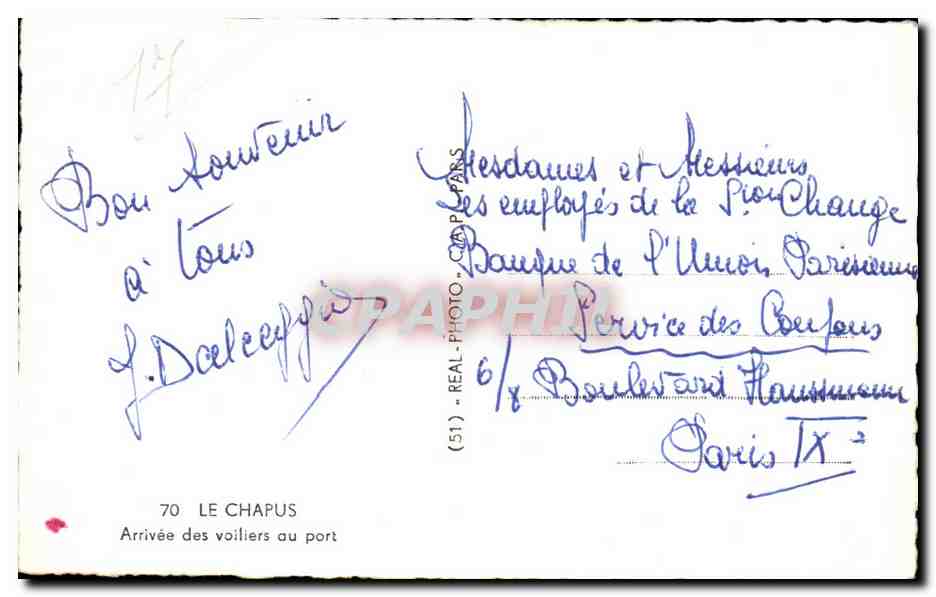 17
Bon souvenir
à tous
J. Daleggio
70 LE CHAPUS
Arrivée des voiliers au port
(51) - REAL-PHOTO - C.A.P. - PARIS
CPAPHIL
Mesdames et Messieurs
Les employés de la Son Change
Banque de l'Union Parisienne
Service des Coupons
6/8 Boulevard Haussmann
Paris IX